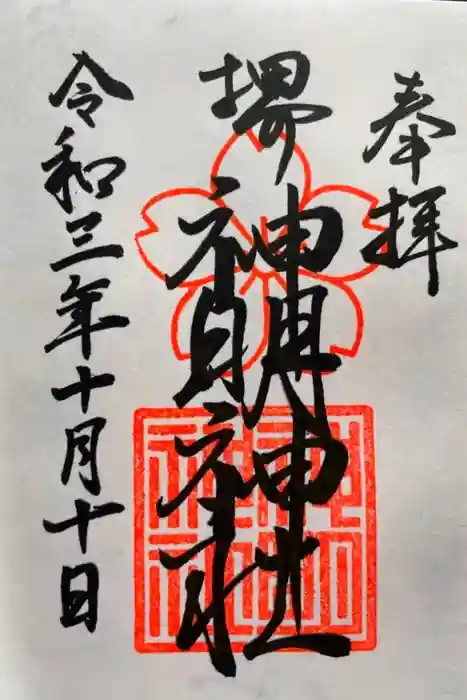 奉拝
堺
神明神社
令和三年十月十日